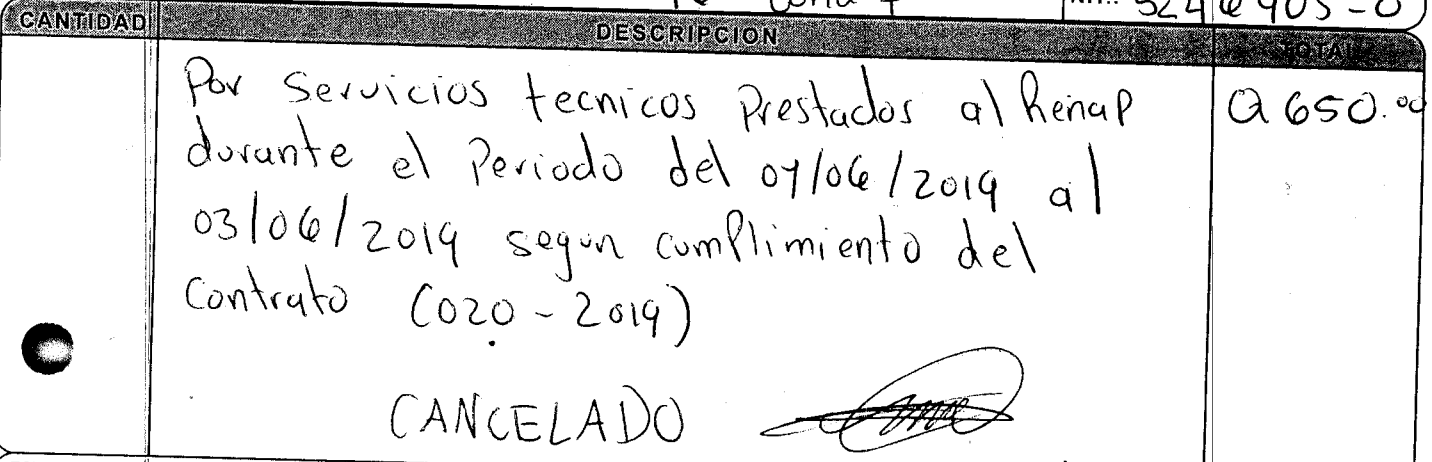 Zona 7
NIT.: 5246905-0
CANTIDAD DESCRIPCION TOTAL
Por Servicios tecnicos Prestados al Renap Q 650.00
durante el Periodo del 01/06/2019 al
03/06/2019 segun cumplimiento del
Contrato (020-2019)
CANCELADO